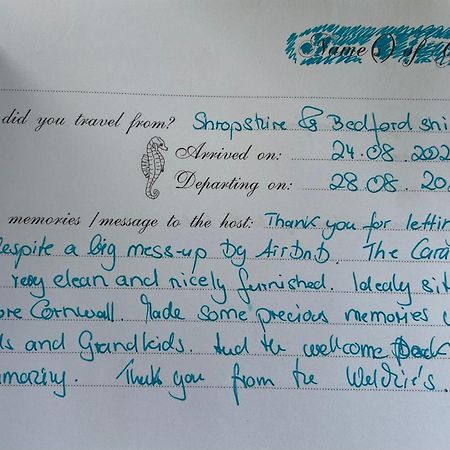 Name of
did you travel from? Shropshire & Bedfordshi
Arrived on: 24.08.202
Departing on: 28.08.20
memories / message to the host: Thank you for lettin
espite a big mess-up by AirBnB. The Cara
very clean and nicely furnished. Idealy sit
ore Cornwall. Made some precious memories w
ds and Grandkids. And the welcome pack
amazing. Thank you from the